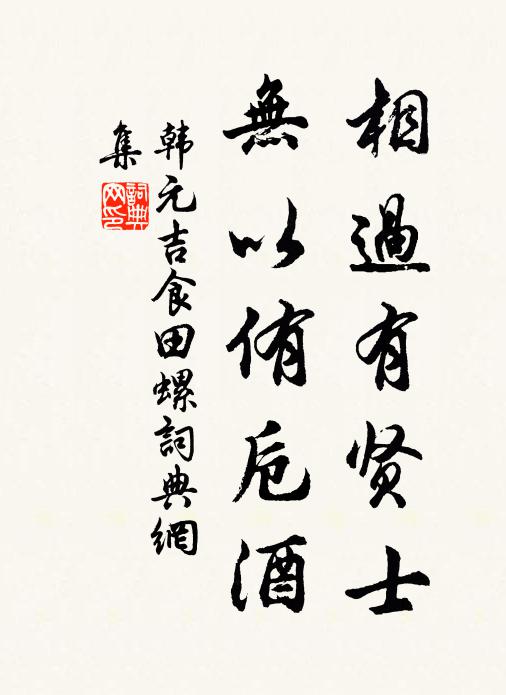 相過有贤士
無以侑卮酒
韩元吉食田螺詞典網
集
詞典网印